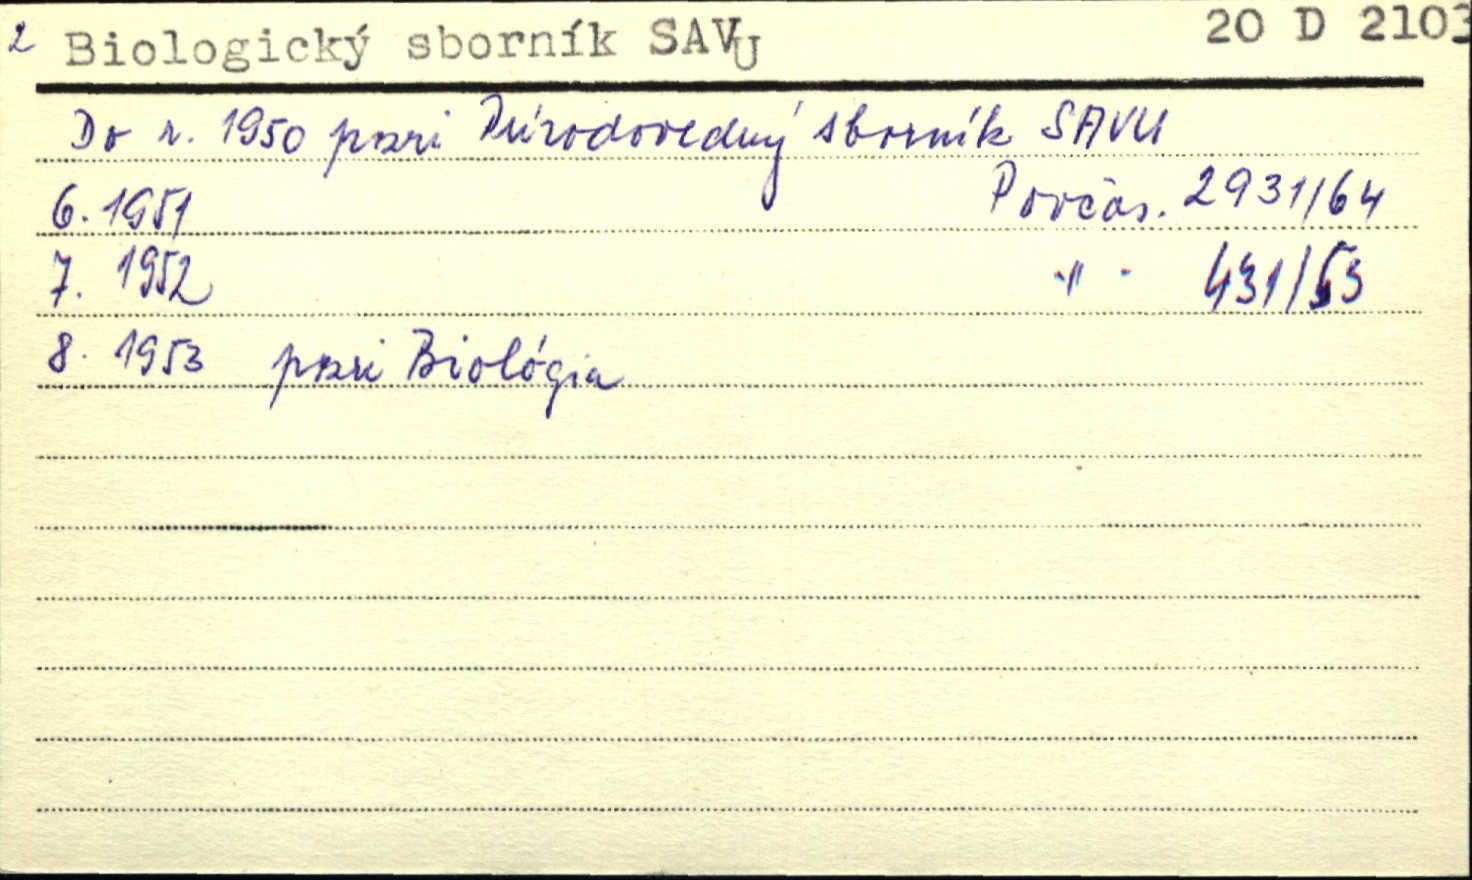 2 Biologický sborník SAVU 20 D 2103
Do r. 1950 pozri Prírodovedný sborník SAVU
6. 1951 Povčas. 2931/64
7. 1952 -"- 431/53
8. 1953 pozri Biológia